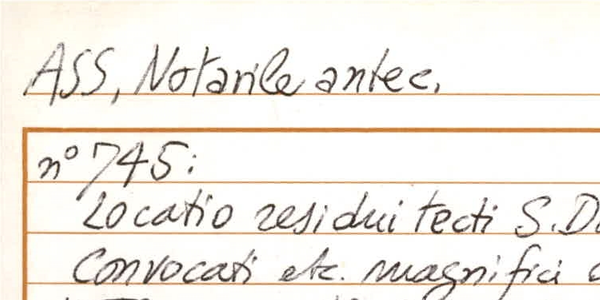 ASS, Notarile antec.
n° 745:
Locatio residui tecti S. Do
Convocati etc. magnifici